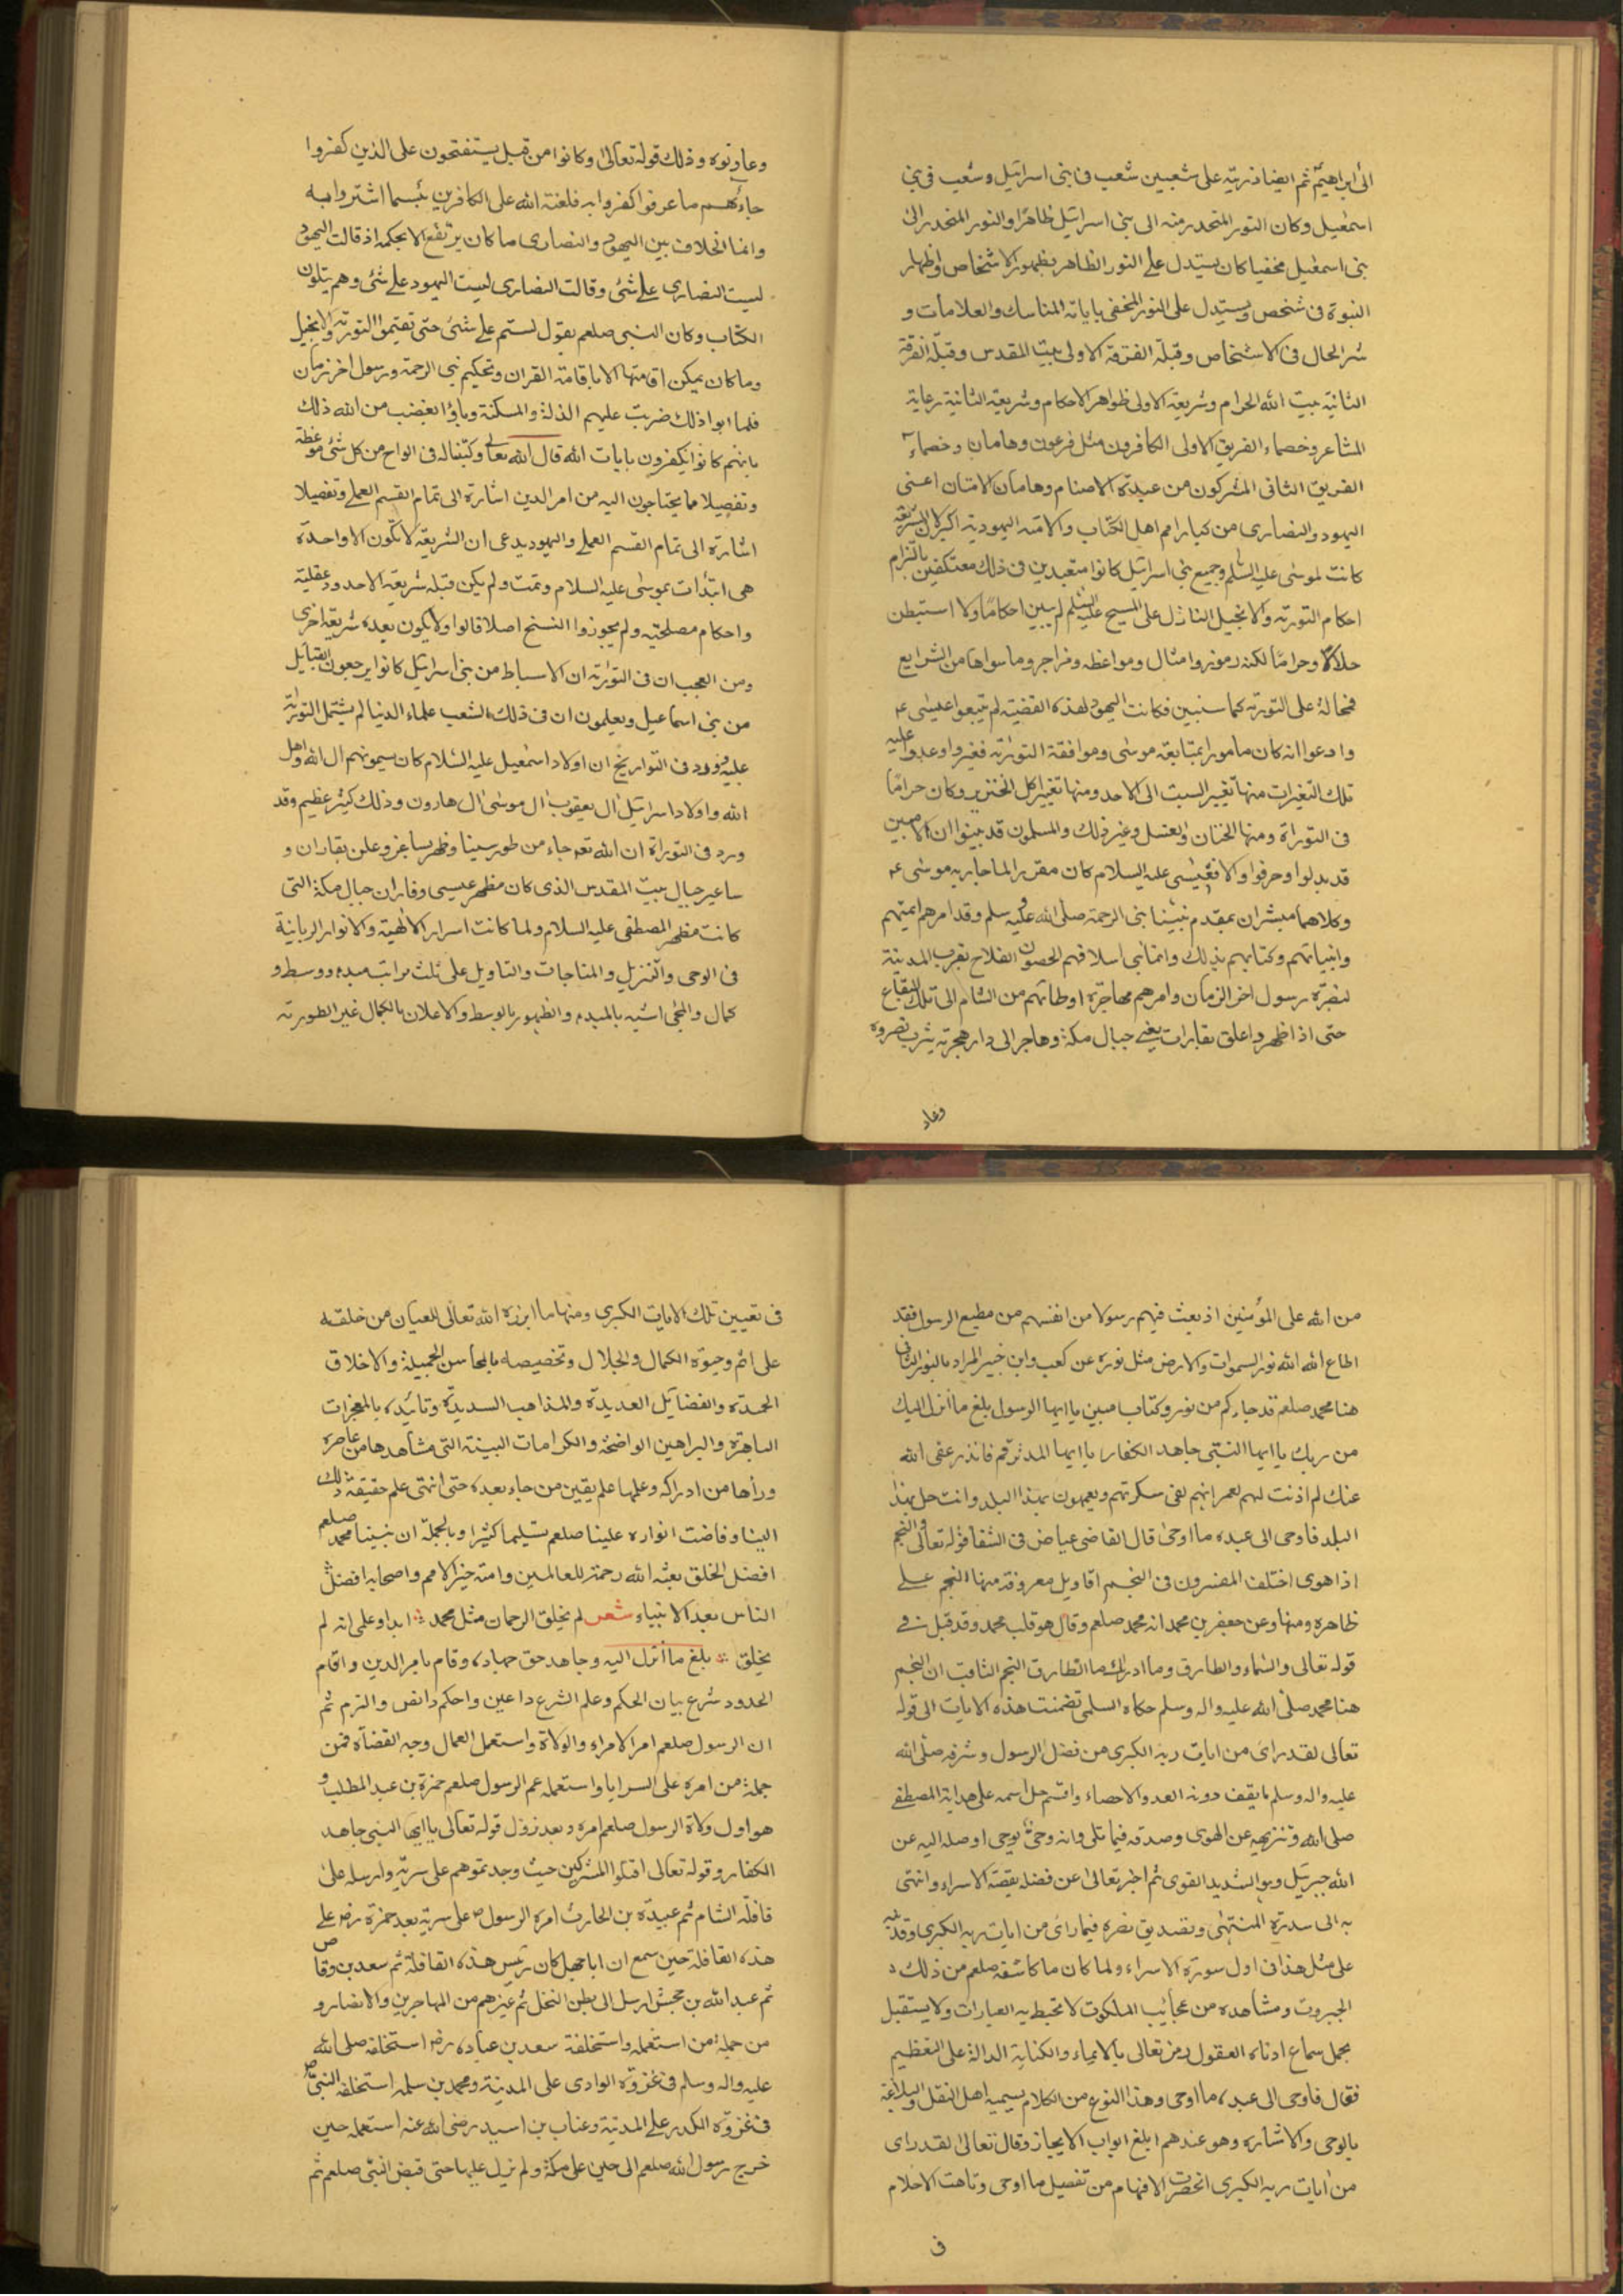 الى ابراهيم ثم ايضا ذريته على شعبين شعب فى بنى اسرائيل وشعب فى بنى
اسمعيل وكان النور المتحدر منه الى بنى اسرائيل ظاهرا والنور المنحدر الى
بنى اسمعيل مخفيا كان يستدل على النور الظاهر بظهور الاشخاص واظهار
النبوة فى شخص ويستدل على النور المخفى باياته المناسك والعلامات و
ستر الحال فى الاشخاص وقبلة الفرقة الاولى بيت المقدس وقبلة الفرقة
الثانية بيت الله الحرام وشريعة الاولى ظواهر الاحكام وشريعة الثانية رعاية
المشاعر وخصماء الفريق الاولى الكافرون مثل فرعون وهامان وخصماء
الفريق الثانى المشركون من عبدة الاصنام وهامان الامتان اعنى
اليهود والنصارى من كبار امم اهل الكتاب والامة اليهودية اكبر لان الشريعة
كانت لموسى عليه السلم وجميع بنى اسرائيل كانوا متعبدين فى ذلك معتكفين بالتزام
احكام التورية والانجيل النازل على المسيح عليه السلم لم يبين احكاما ولا استبطن
حلالا وحراما لكنه رموز وامثال ومواعظه ومزاجر وما سواها من الشرايع
فمحالة على التورية كما سنبين فكانت اليهود لهذه القضية لم يتبعوا عيسى عم
وادعوا انه كان مامورا بمتابعة موسى وموافقة التورية فغيروا وعدوا عليه
تلك التغيرات منها تغيير السبت الى الاحد ومنها تغيير اكل الخنزير وكان حراما
فى التوراة ومنها الختان والغسل وغير ذلك والمسلمون قد بينوا ان الامتين
قد بدلوا وحرفوا والا فعيسى عليه السلام كان مقررا لما جاء به موسى عم
وكلاهما مبشران بمقدم نبينا نبى الرحمة صلى الله عليه وسلم وقد امرهم ايمتهم
وانبياتهم وكتابهم بذلك وانما بنى اسلافهم الحصون القلاح بقرب المدينة
لنصرة رسول اخر الزمان وامرهم مهاجرة اوطانهم من الشام الى تلك البقاع
حتى اذا ظهر واعلق بقاران يعنى جبال مكة وهاجر الى دار هجرته يثرب نصروه
وعاد
وعاونوه وذلك قوله تعالى وكانوا من قبل يستفتحون على الذين كفروا
جاءهم ما عرفوا كفروا به فلعنة الله على الكافرين بئسما اشتروا به
وانما الخلاف بين اليهود والنصارى ما كان يرتفع الا بحكمه اذ قالت اليهود
ليست النصارى على شئ وقالت النصارى ليست اليهود على شئ وهم يتلون
الكتاب وكان النبى صلعم يقول لستم على شئ حتى تقيموا التورية والانجيل
وما كان يمكن اقامتها الا باقامة القران وتحكيم نبى الرحمة ورسول اخر زمان
فلما ابوا ذلك ضربت عليهم الذلة والمسكنة وباؤا بغضب من الله ذلك
بانهم كانوا يكفرون بايات الله قال الله تعالى وكتبنا له فى الواح من كل شئ موعظة
وتفصيلا مما يحتاجون اليه من امر الدين اشارة الى تمام القسم العملى وتفصيلا
اشارة الى تمام القسم العملى واليهود يدعى ان الشريعة لا تكون الا واحدة
هى ابتدأت بموسى عليه السلام وتمت ولم يكن قبله شريعة الا حدود عقلية
واحكام مصلحتيه ولم يجوزوا النسخ اصلا قالوا ولا يكون بعده شريعة اخرى
ومن العجب ان فى التوراة ان الاسباط من بنى اسرائيل كانوا يرجعون القبائل
من بنى اسماعيل ويعلمون ان فى ذلك الشعب علماء الدنيا لم يشتمل التورية
عليه وورد فى التواريخ ان اولاد اسمعيل عليه السلام كان يسمونهم ال الله واهل
الله واولاد اسرائيل ال يعقوب ال موسى ال هارون وذلك كثير عظيم وقد
ورد فى التوراة ان الله تعه جاء من طور سينا وظهر بساغر وعلن بقاران و
ساعير جبال بيت المقدس الذى كان مظهر عيسى وفاران جبال مكة التى
كانت مظهر المصطفى عليه السلام ولما كانت اسرار الالهية والانوار الربانية
فى الوحى والتنزيل والمناجات والتاويل على ثلث مراتب مبدء ووسط و
كمال والمجى اشبه بالمبدء والظهور بالوسط والاعلان بالكمال غير الطورية
من الله على المؤمنين اذ بعث فيهم رسولا من انفسهم من مطيع الرسول فقد
اطاع الله الله نور السموات والارض مثل نوره عن كعب وابن خبير المراد بالنور الثانى
هنا محمد صلعم قد جاءكم من نور وكتاب مبين يا ايها الرسول بلغ ما انزل اليك
من ربك يا ايها النبى جاهد الكفار يا ايها المدثر قم فانذر عفى الله
عنك لم اذنت لهم لعمر انهم لفى سكرتهم ويعمهون بهذا البلد وانت حل بهذا
البلد فاوحى الى عبده ما اوحى قال القاضى عياض فى الشفا قوله تعالى والنجم
اذا هوى اختلف المفسرون فى النجم اقاويل معروفة منها النجم على
ظاهره ومنها وعن جعفر بن محمد انه محمد صلعم وقال هو قلب محمد وقد قيل فى
قوله تعالى والسماء والطارق وما ادراك ما الطارق النجم الثاقب ان النجم
هنا محمد صلى الله عليه واله وسلم حكاه السلمى تضمنت هذه الايات الى قوله
تعالى لقد راى من ايات ربه الكبرى من فضل الرسول وشرفه صلى الله
عليه واله وسلم ما يقف دونه العد والاحصاء واقسم جل اسمه على هداية المصطفى
صلى الله وتنزيهه عن الهوى وصدقه فيما تلى وانه وحى يوحى اوصله اليه عن
الله جبريل وهو الشديد القوى ثم اخبر تعالى عن فضله بقصة الاسراء وانتهى
به الى سدرة المنتهى وتصديق بصره فيما راى من ايات ربه الكبرى وقد نبه
على مثل هذا فى اول سورة الاسراء ولما كان ما كاشفه صلعم من ذلك
الجبروت ومشاهده من عجائب الملكوت لا تحيط به العبارات ولا يستقبل
بحمل سماع ادناه العقول رمز تعالى بالايماء والكناية الدالة على التعظيم
فقال فاوحى الى عبده ما اوحى وهذا النوع من الكلام يسميه اهل النقل والبلاغة
بالوحى والاشارة وهو عندهم ابلغ ابواب الايجاز وقال تعالى لقد راى
من ايات ربه الكبرى انحصرت الافهام من تفصيل ما اوحى وتاهت الاحلام
ف
فى تعيين تلك الايات الكبرى ومنها ما ابرزه الله تعالى للعيان من خلقه
على اتم وجوه الكمال والجلال وتخصيصه بالمحاسن الجميلة والاخلاق
الحمدة والفضايل العديدة والمذاهب السديدة وتائيده بالمعجزات
الباهرة والبراهين الواضحة والكرامات البينة التى مشاهدها من عاصره
وراها من ادراكه وعلمها علم يقين من جاء بعده حتى انتهى علم حقيقة ذلك
الينا وفاضت انواره علينا صلعم تسليما كثيرا وبالجملة ان نبينا محمد صلعم
افضل الخلق بعثه الله رحمة للعالمين وامته خير الامم واصحابه افضل
الناس بعد الانبياء شعر لم يخلق الرحمان مثل محمد ابدا وعلى انه لم
يخلق بلغ ما انزل اليه وجاهد حق جهاده وقام بامر الدين واقام
الحدود شرع بيان الحكم وعلم الشرع داعين واحكم دانض والزم ثم
ان الرسول صلعم امر الامراء والولاة واستعمل العمال وجه القضاة فمن
جملة من امره على السرايا واستعمله عم الرسول صلعم حمزة بن عبد المطلب و
هو اول ولاة الرسول صلعم امره بعد نزول قوله تعالى يا ايها النبى جاهد
الكفار وقوله تعالى اقتلوا المشركين حيث وجدتموهم على سرية وارسله على
قافلة الشام ثم عبيدة بن الحارث امره الرسول ص على سرية بعد حمزة رض على
هذه القافلة حين سمع ان ابا جهل كان رئيس هذه القافلة ثم سعد بن وقاص
ثم عبد الله بن جحش ارسل الى بطن النخل ثم غيرهم من المهاجرين والانصار و
من جملة من استعمله واستخلفه سعد بن عباده رض استخلفه صلى الله
عليه واله وسلم فى غزوة الوادى على المدينة ومحمد بن سلمه استخلفه النبى ص
فى غزوة الكدر على المدينة وعتاب بن اسيد رضى الله عنه استعمله حين
خرج رسول الله صلعم الى حين على مكة ولم يزل عليها حتى قبض النبى صلعم ثم